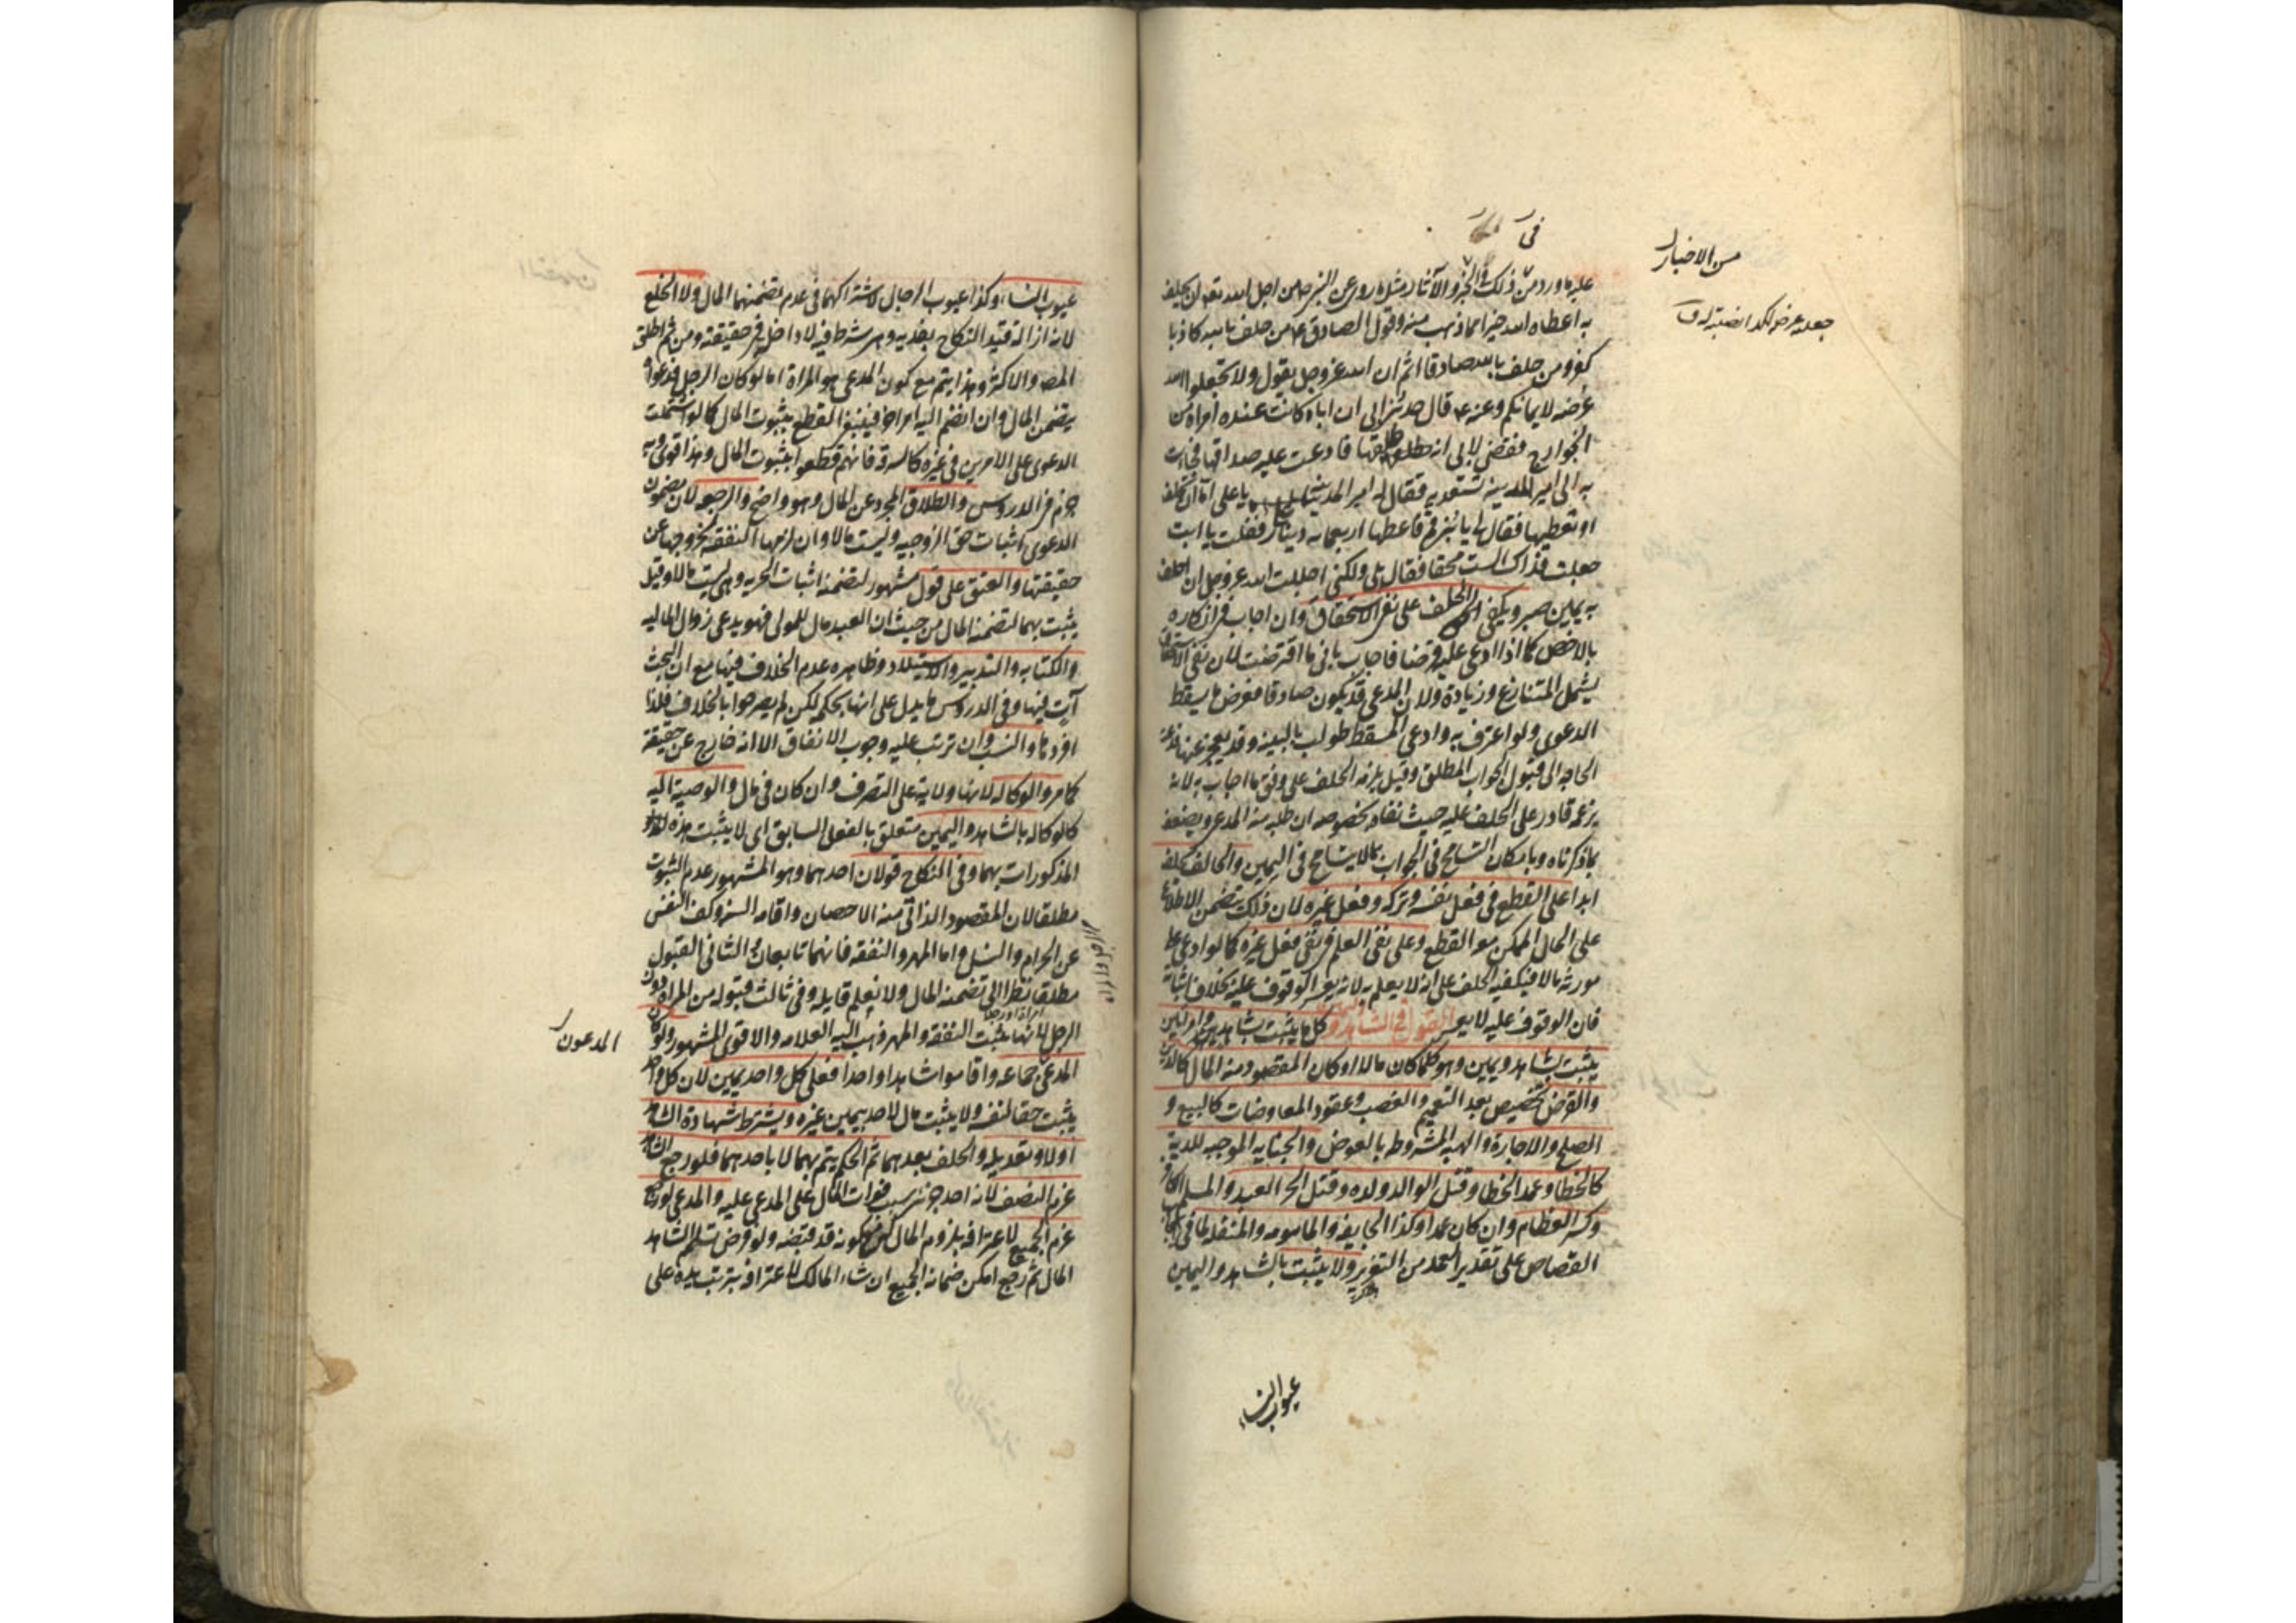 من الاخبار
جعله عرضا لكذا نصبته له ق
فى
عليه ما ورد من ذلك فى الخبر والآثار مثل ما روى عن النبى ص من اجل الله تعه ان يحلف
به اعطاه الله خيرا مما ذهب منه وقول الصادق ع من حلف بالله كاذبا
كفر ومن حلف بالله صادقا اثم ان الله عز وجل يقول ولا تجعلوا الله
عرضه لايمانكم وعنه ع قال حدثنى ابى ان اباه كانت عنده امراة من
الخوارج فقضى لابى انه طلقها فادعت عليه صداقها فجاءت
به الى امير المدينه تستعديه فقال له امير المدينه يا على اما ان تحلف
او تعطيها فقال لى يا بنى قم فاعطها اربعمايه دينار فقلت يا ابت
جعلت فداك الست محقا فقال بلى ولكنى اجللت الله عز وجل ان احلف
به يمين صبر ويكفى الحلف على نفى الاستحقاق وان اجاب فى انكاره
بالاخص كما اذا ادعى عليه قرضا فاجاب بانى ما اقترضت لان نفى الاستحقاق
يشمل المتنازع وزيادة ولان المدعى قد يكون صادقا فعرض ما يسقط
الدعوى ولو اعترف به وادعى المسقط طولب بالبينه وقد يعجز عنها فدعت
الحاجه الى قبول الجواب المطلق وقيل يلزمه الحلف على وفق ما اجاب به لانه
بزعمه قادر على الحلف عليه حيث نفاه بخصوصه ان طلبه منه المدعى ويضعف
بما ذكرناه وبامكان التسامح فى الجواب بما لا يتسامح فى اليمين والحالف يحلف
ابدا على القطع فى فعل نفسه وتركه وفعل غيره لان ذلك يتضمن الاطلاع
على الحال الممكن معه القطع وعلى نفى العلم فى نفى فعل غيره كما لو ادعى على
مورثه مالا فيكفيه الحلف على انه لا يعلم به لانه يعسر الوقوف عليه بخلاف اثباته
فان الوقوف عليه لا يعسر القول فى الشاهد واليمين كل ما يثبت بشاهد وامراتين
يثبت بشاهد ويمين وهو كلما كان مالا او كان المقصود منه المال كالدين
والقرض تخصيص بعد التعميم والغصب وعقود المعاوضات كالبيع و
الصلح والاجارة والهبه المشروطه بالعوض والجنايه الموجبه للدية
كالخطا وعمد الخطا وقتل الوالد ولده وقتل الحر العبد والمسلم الكافر
وكسر العظام وان كان عمدا وكذا الجايفه والمامومه والمنقله لما فى ايجاب
القصاص على تقدير العمد من التغرير ولا يثبت بالشاهد واليمين
عيوب النساء
عيوب النساء وكذا عيوب الرجال لاشتراكهما فى عدم تضمنهما المال ولا الخلع
لانه ازالة قيد النكاح بفديه وهى شرط فيه لا داخل فى حقيقته ومن ثم اطلق
المصه والاكثر وهذا يتم مع كون المدعى هو المراة اما لو كان الرجل فدعواه
يتضمن المال وان انضم اليه امر اخر فينبغى القطع بثبوت المال كما لو اشتملت
الدعوى على الامرين فى غيره كالسرقه فانهم قطعوا بثبوت المال وهذا قوى وبه
جزم فى الدروس والطلاق المجرد عن المال وهو واضح والرجعه لان مضمون
الدعوى اثبات حق الزوجيه وليست مالا وان لزمها النفقه لخروجها عن
حقيقتها والعتق على قول مشهور لتضمنه اثبات الحريه وهى ليست مالا وقيل
يثبت بهما لتضمنه المال من حيث ان العبد مال للمولى فهو يدعى زوال الماليه
والكتابه والتدبير والاستيلاد وظاهره عدم الخلاف فيها مع ان البحث
آت فيها وفى الدروس ما يدل على انها بحكمه لكن لم يصرحوا بالخلاف فلذا
افردها والنسب وان ترتب عليه وجوب الانفاق الا انه خارج عن حقيقته
كما مر والوكاله لانها ولاية على التصرف وان كان فى مال والوصية اليه
كالوكاله بالشاهد واليمين متعلق بالفعل السابق اى لا يثبت هذه
المذكورات بهما وفى النكاح قولان احدهما وهو المشهور عدم الثبوت
مطلقا لان المقصود الذاتى منه الاحصان واقامه السنه وكف النفس
عن الحرام والنسل واما المهر والنفقه فانهما تابعان والثانى القبول
مطلقا نظرا الى تضمنه المال ولا نعلم قايله وفى ثالث قبوله من المراة دون
الرجل لانها تثبت النفقه والمهر وذهب اليه العلامه والاقوى المشهور ولو كان
المدعون
المدعى جماعه واقاموا شاهدا واحدا فعلى كل واحد يمين لان كل واحد
يثبت حقا لنفسه ولا يثبت مال لاحد بيمين غيره ويشترط شهادة الشاهد
اولا وتعديله والحلف بعدهما ثم الحكم يتم بهما لا باحدهما فلو رجع الشاهد
غرم النصف لانه احد جزئى سبب فوات المال على المدعى عليه والمدعى لو رجع
غرم الجميع لاعترافه بلزوم المال له مع كونه قد قبضه ولو فرض تسلم الشاهد
المال ثم رجع امكن ضمانه الجميع ان شاء المالك لاعترافه بترتب يده على